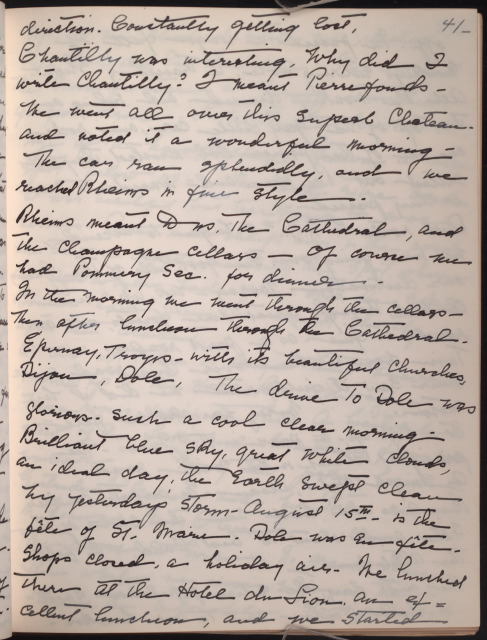 41-
direction. Constantly getting lost,
Chantilly was interesting. Why did I
write Chantilly? I meant Pierrefonds -
We went all over this superb Chateau.
and voted it a wonderful morning -
The car ran splendidly, and we
reached Rheims in fine style.
Rheims meant D ms. The Cathedral, and
the Champagne cellars - Of course we
had Pommery Sec. for dinner.
In the morning we went through the cellars -
Then after luncheon through the Cathedral.
Epernay, Troyes - with its beautiful Churches,
Dijon, Dole, The drive to Dole was
glorious. Such a cool clear morning
Brilliant blue sky, great white clouds,
an ideal day, the Earth swept clean
by yesterday's storm - August 15th - is the
fête of St. Marie. Dole was en fête.
Shops closed, a holiday air. We lunched
there at the Hotel du Lion. an ex=
cellent luncheon, and we started